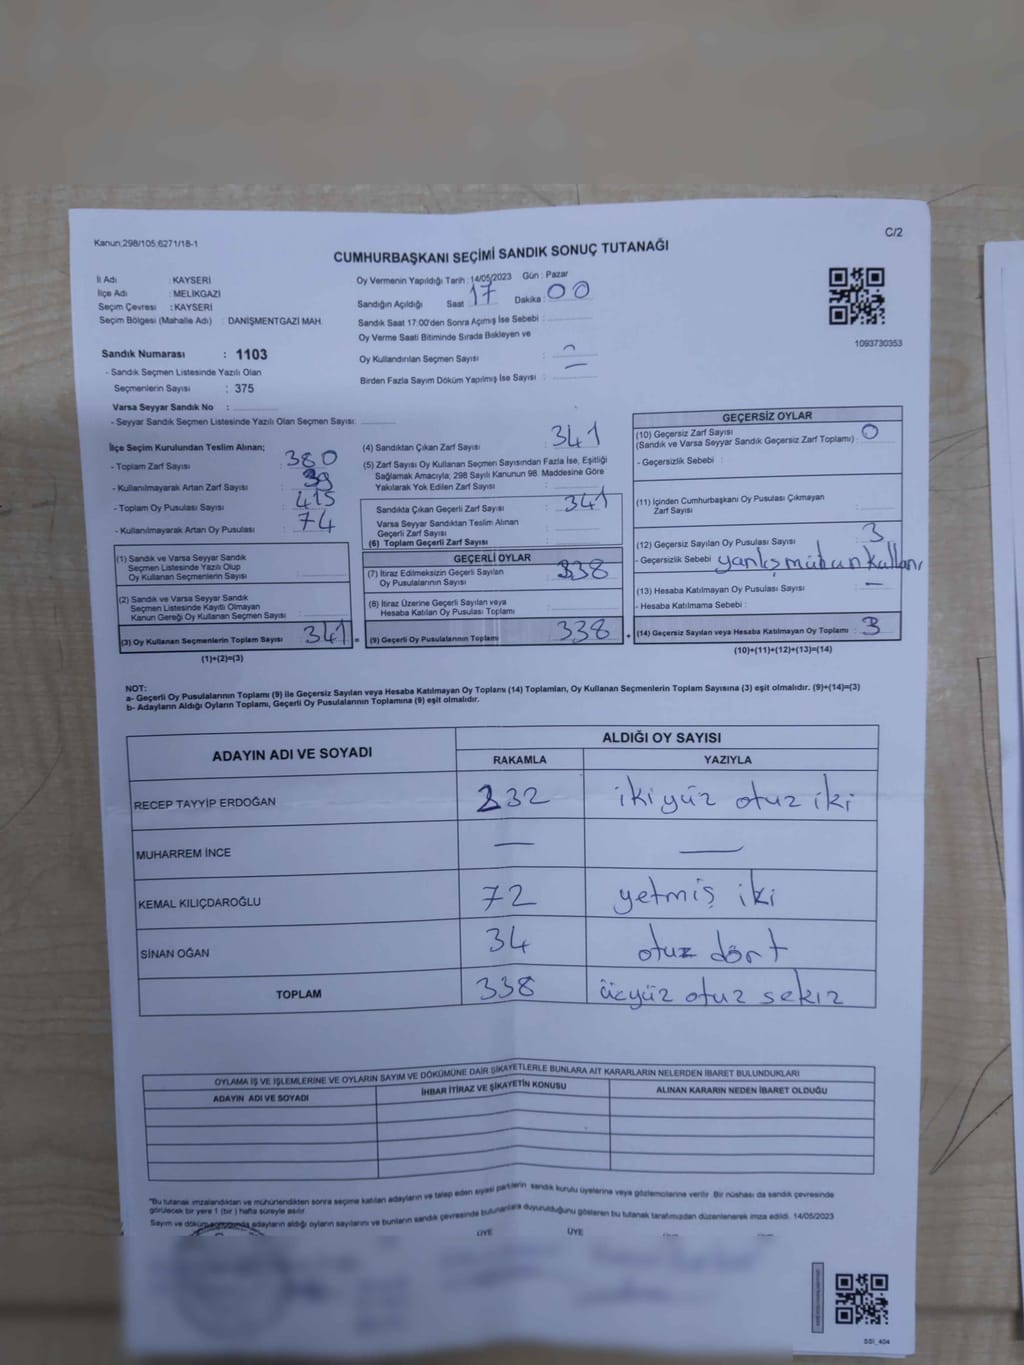 Kanun,298/105;6271/18-1
C/2
CUMHURBAŞKANI SEÇİMİ SANDIK SONUÇ TUTANAĞI
İl Adı : KAYSERİ
İlçe Adı : MELİKGAZİ
Seçim Çevresi : KAYSERİ
Seçim Bölgesi (Mahalle Adı) : DANİŞMENTGAZİ MAH.
Sandık Numarası : 1103
- Sandık Seçmen Listesinde Yazılı Olan
Seçmenlerin Sayısı : 375
Varsa Seyyar Sandık No :
- Seyyar Sandık Seçmen Listesinde Yazılı Olan Seçmen Sayısı:
Oy Vermenin Yapıldığı Tarih : 14/05/2023 Gün : Pazar
Sandığın Açıldığı Saat 17 Dakika : 00
Sandık Saat 17:00'den Sonra Açımış İse Sebebi :
Oy Verme Saati Bitiminde Sırada Bekleyen ve
Oy Kullandırılan Seçmen Sayısı : -
Birden Fazla Sayım Döküm Yapılmış İse Sayısı : -
1093730353
İlçe Seçim Kurulundan Teslim Alınan;
- Toplam Zarf Sayısı : 380
- Kullanılmayarak Artan Zarf Sayısı : 39
- Toplam Oy Pusulası Sayısı : 415
- Kullanılmayarak Artan Oy Pusulası : 74
(1) Sandık ve Varsa Seyyar Sandık
Seçmen Listesinde Yazılı Olup
Oy Kullanan Seçmenlerin Sayısı :
(2) Sandık ve Varsa Seyyar Sandık
Seçmen Listesinde Kayıtlı Olmayan
Kanun Gereği Oy Kullanan Seçmen Sayısı :
(3) Oy Kullanan Seçmenlerin Toplam Sayısı : 341 =
(1)+(2)=(3)
(4) Sandıktan Çıkan Zarf Sayısı : 341
(5) Zarf Sayısı Oy Kullanan Seçmen Sayısından Fazla İse, Eşitliği
Sağlamak Amacıyla, 298 Sayılı Kanunun 98. Maddesine Göre
Yakılarak Yok Edilen Zarf Sayısı :
Sandıkta Çıkan Geçerli Zarf Sayısı : 341
Varsa Seyyar Sandıktan Teslim Alınan
Geçerli Zarf Sayısı :
(6) Toplam Geçerli Zarf Sayısı :
GEÇERLİ OYLAR
(7) İtiraz Edilmeksizin Geçerli Sayılan
Oy Pusulalarının Sayısı : 338
(8) İtiraz Üzerine Geçerli Sayılan veya
Hesaba Katılan Oy Pusulası Toplamı :
(9) Geçerli Oy Pusulalarının Toplamı : 338 +
GEÇERSİZ OYLAR
(10) Geçersiz Zarf Sayısı
(Sandık ve Varsa Seyyar Sandık Geçersiz Zarf Toplamı) : 0
- Geçersizlik Sebebi :
(11) İçinden Cumhurbaşkanı Oy Pusulası Çıkmayan
Zarf Sayısı :
(12) Geçersiz Sayılan Oy Pusulası Sayısı : 3
- Geçersizlik Sebebi yanlış mühür kullanı
(13) Hesaba Katılmayan Oy Pusulası Sayısı : -
- Hesaba Katılmama Sebebi :
(14) Geçersiz Sayılan veya Hesaba Katılmayan Oy Toplamı : 3
(10)+(11)+(12)+(13)=(14)
NOT:
a- Geçerli Oy Pusulalarının Toplamı (9) ile Geçersiz Sayılan veya Hesaba Katılmayan Oy Toplamı (14) Toplamları, Oy Kullanan Seçmenlerin Toplam Sayısına (3) eşit olmalıdır. (9)+(14)=(3)
b- Adayların Aldığı Oyların Toplamı, Geçerli Oy Pusulalarının Toplamına (9) eşit olmalıdır.
ADAYIN ADI VE SOYADI ALDIĞI OY SAYISI
RAKAMLA YAZIYLA
RECEP TAYYİP ERDOĞAN 232 iki yüz otuz iki
MUHARREM İNCE — —
KEMAL KILIÇDAROĞLU 72 yetmiş iki
SİNAN OĞAN 34 otuz dört
TOPLAM 338 üçyüz otuz sekiz
OYLAMA İŞ VE İŞLEMLERİNE VE OYLARIN SAYIM VE DÖKÜMÜNE DAİR ŞİKAYETLERLE BUNLARA AİT KARARLARIN NELERDEN İBARET BULUNDUKLARI
ADAYIN ADI VE SOYADI İHBAR İTİRAZ VE ŞİKAYETİN KONUSU ALINAN KARARIN NEDEN İBARET OLDUĞU
"Bu tutanak imzalandıktan ve mühürlendikten sonra seçime katılan adayların ve talep eden siyasi partilerin sandık kurulu üyelerine veya gözlemcilerine verilir. Bir nüshası da sandık çevresinde
görülecek bir yere 1 (bir) hafta süreyle asılır.
Sayım ve döküm sonucunda adayların aldığı oyların sayılarını ve bunların sandık çevresinde bulunanlara duyurulduğunu gösteren bu tutanak tarafımızdan düzenlenerek imza edildi. 14/05/2023
ÜYE ÜYE
SSİ_404